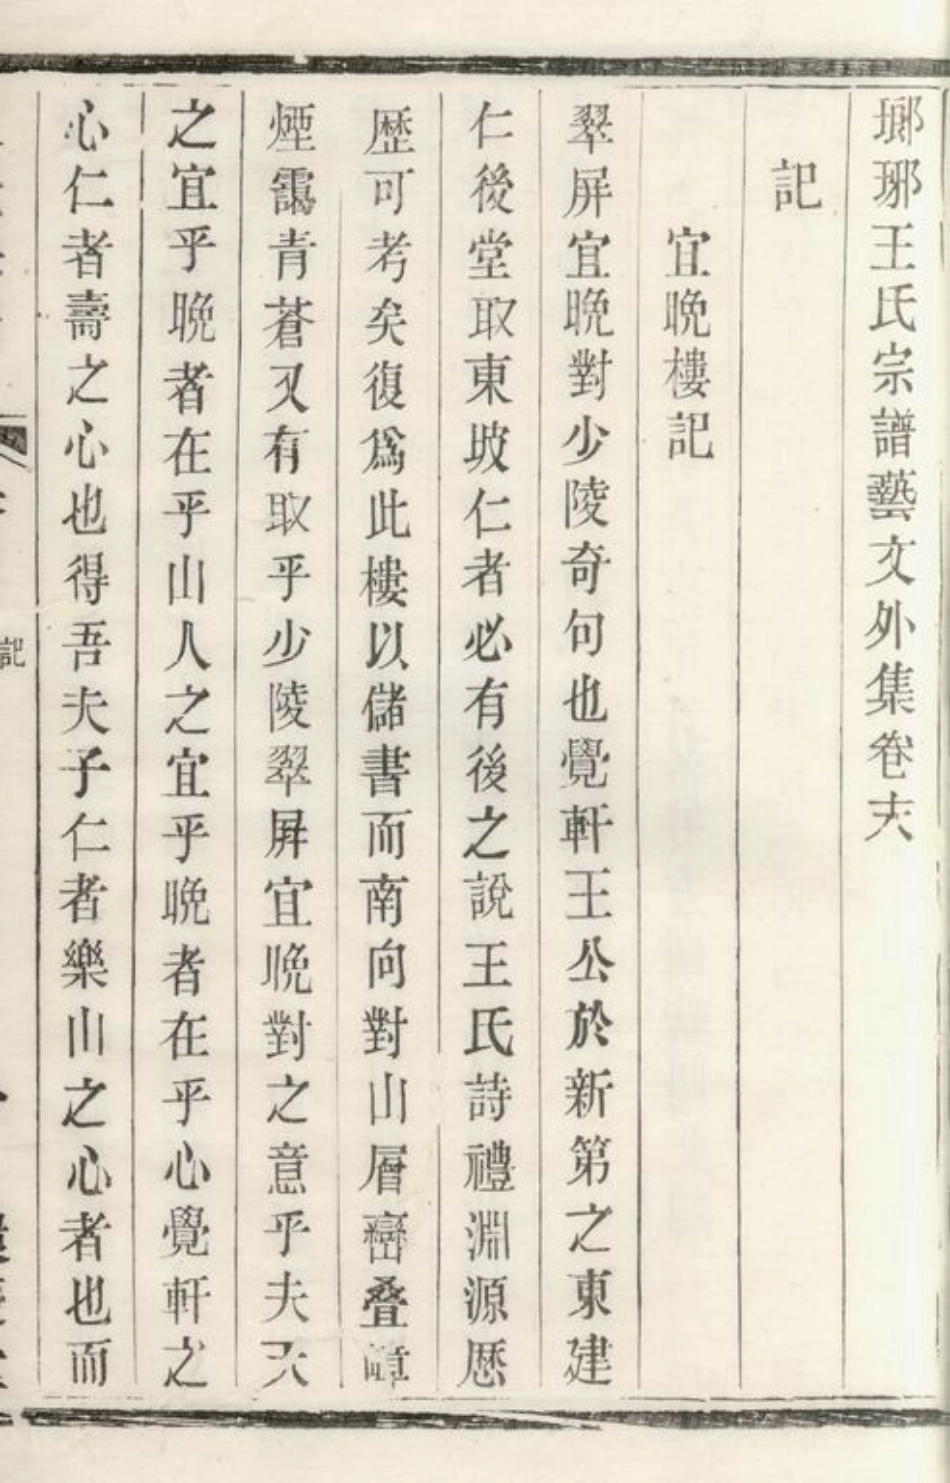 瑯琊王氏宗譜藝文外集卷末
記
宜晚樓記
翠屏宜晚對少陵奇句也覺軒王公於新第之東建
仁後堂取東坡仁者必有後之說王氏詩禮淵源歷
歷可考矣復爲此樓以儲書而南向對山層巒叠嶂
煙靄青蒼又有取乎少陵翠屏宜晚對之意乎夫天
之宜乎晚者在乎山人之宜乎晚者在乎心覺軒之
心仁者壽之心也得吾夫子仁者樂山之心者也而
記